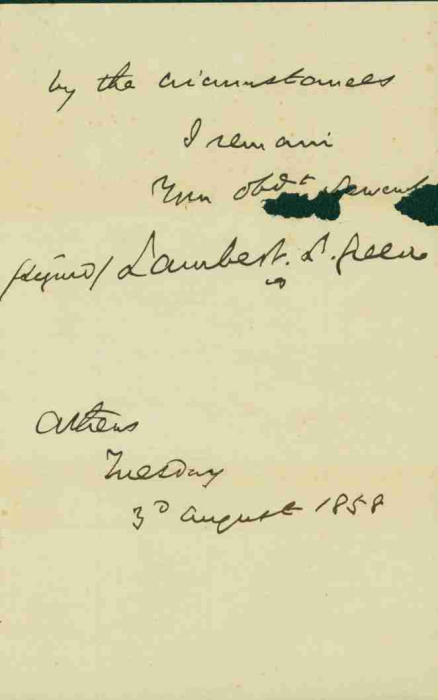 by the circumstances
I remain
Your obdt Servant
(signed) Lambert. L. Greene
Athens
Tuesday
3d August 1858